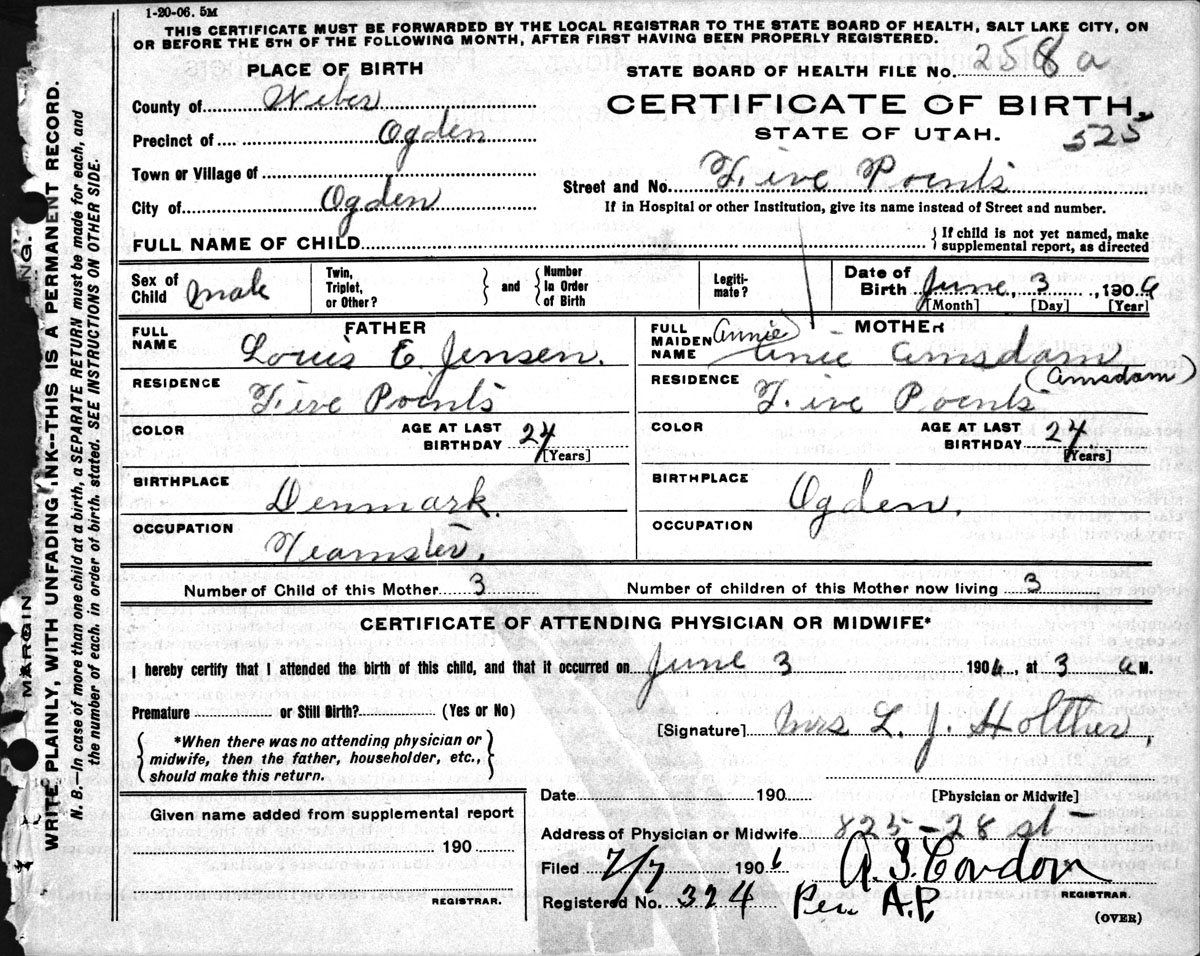 1-20-06. 5M
THIS CERTIFICATE MUST BE FORWARDED BY THE LOCAL REGISTRAR TO THE STATE BOARD OF HEALTH, SALT LAKE CITY, ON
OR BEFORE THE 5TH OF THE FOLLOWING MONTH, AFTER FIRST HAVING BEEN PROPERLY REGISTERED.
PLACE OF BIRTH
STATE BOARD OF HEALTH FILE No. 258 a
County of Weber
CERTIFICATE OF BIRTH.
Precinct of Ogden
STATE OF UTAH.
525
Town or Village of
Street and No. Five Points
City of Ogden
If in Hospital or other Institution, give its name instead of Street and number.
FULL NAME OF CHILD
{ If child is not yet named, make
supplemental report, as directed
Sex of Child male
Twin, Triplet, or Other?
and
Number In Order of Birth
Legiti-mate?
Date of Birth June, 3, 1906
[Month] [Day] [Year]
FATHER
FULL NAME Louis E. Jensen.
RESIDENCE Five Points
COLOR
AGE AT LAST BIRTHDAY 24
[Years]
BIRTHPLACE Denmark.
OCCUPATION Teamster.
MOTHER
FULL MAIDEN NAME Annie Anie Amsdam
(Amsdam)
RESIDENCE Five Points
COLOR
AGE AT LAST BIRTHDAY 24
[Years]
BIRTHPLACE Ogden.
OCCUPATION
Number of Child of this Mother 3
Number of children of this Mother now living 3
CERTIFICATE OF ATTENDING PHYSICIAN OR MIDWIFE*
I hereby certify that I attended the birth of this child, and that it occurred on June 3 1906, at 3 a M.
Premature or Still Birth? (Yes or No)
[Signature] Mrs L. J. Holther,
*When there was no attending physician or
midwife, then the father, householder, etc.,
should make this return.
Date 190
[Physician or Midwife]
Given name added from supplemental report
190
REGISTRAR.
Address of Physician or Midwife 825-28 st
Filed 7/7 1906
A. S. Condon
REGISTRAR.
Registered No. 324
Per A.P.
(OVER)
WRITE PLAINLY, WITH UNFADING INK--THIS IS A PERMANENT RECORD.
N. B.--In case of more than one child at a birth, a SEPARATE RETURN must be made for each, and
the number of each, in order of birth, stated. SEE INSTRUCTIONS ON OTHER SIDE.
MARGIN
NG.